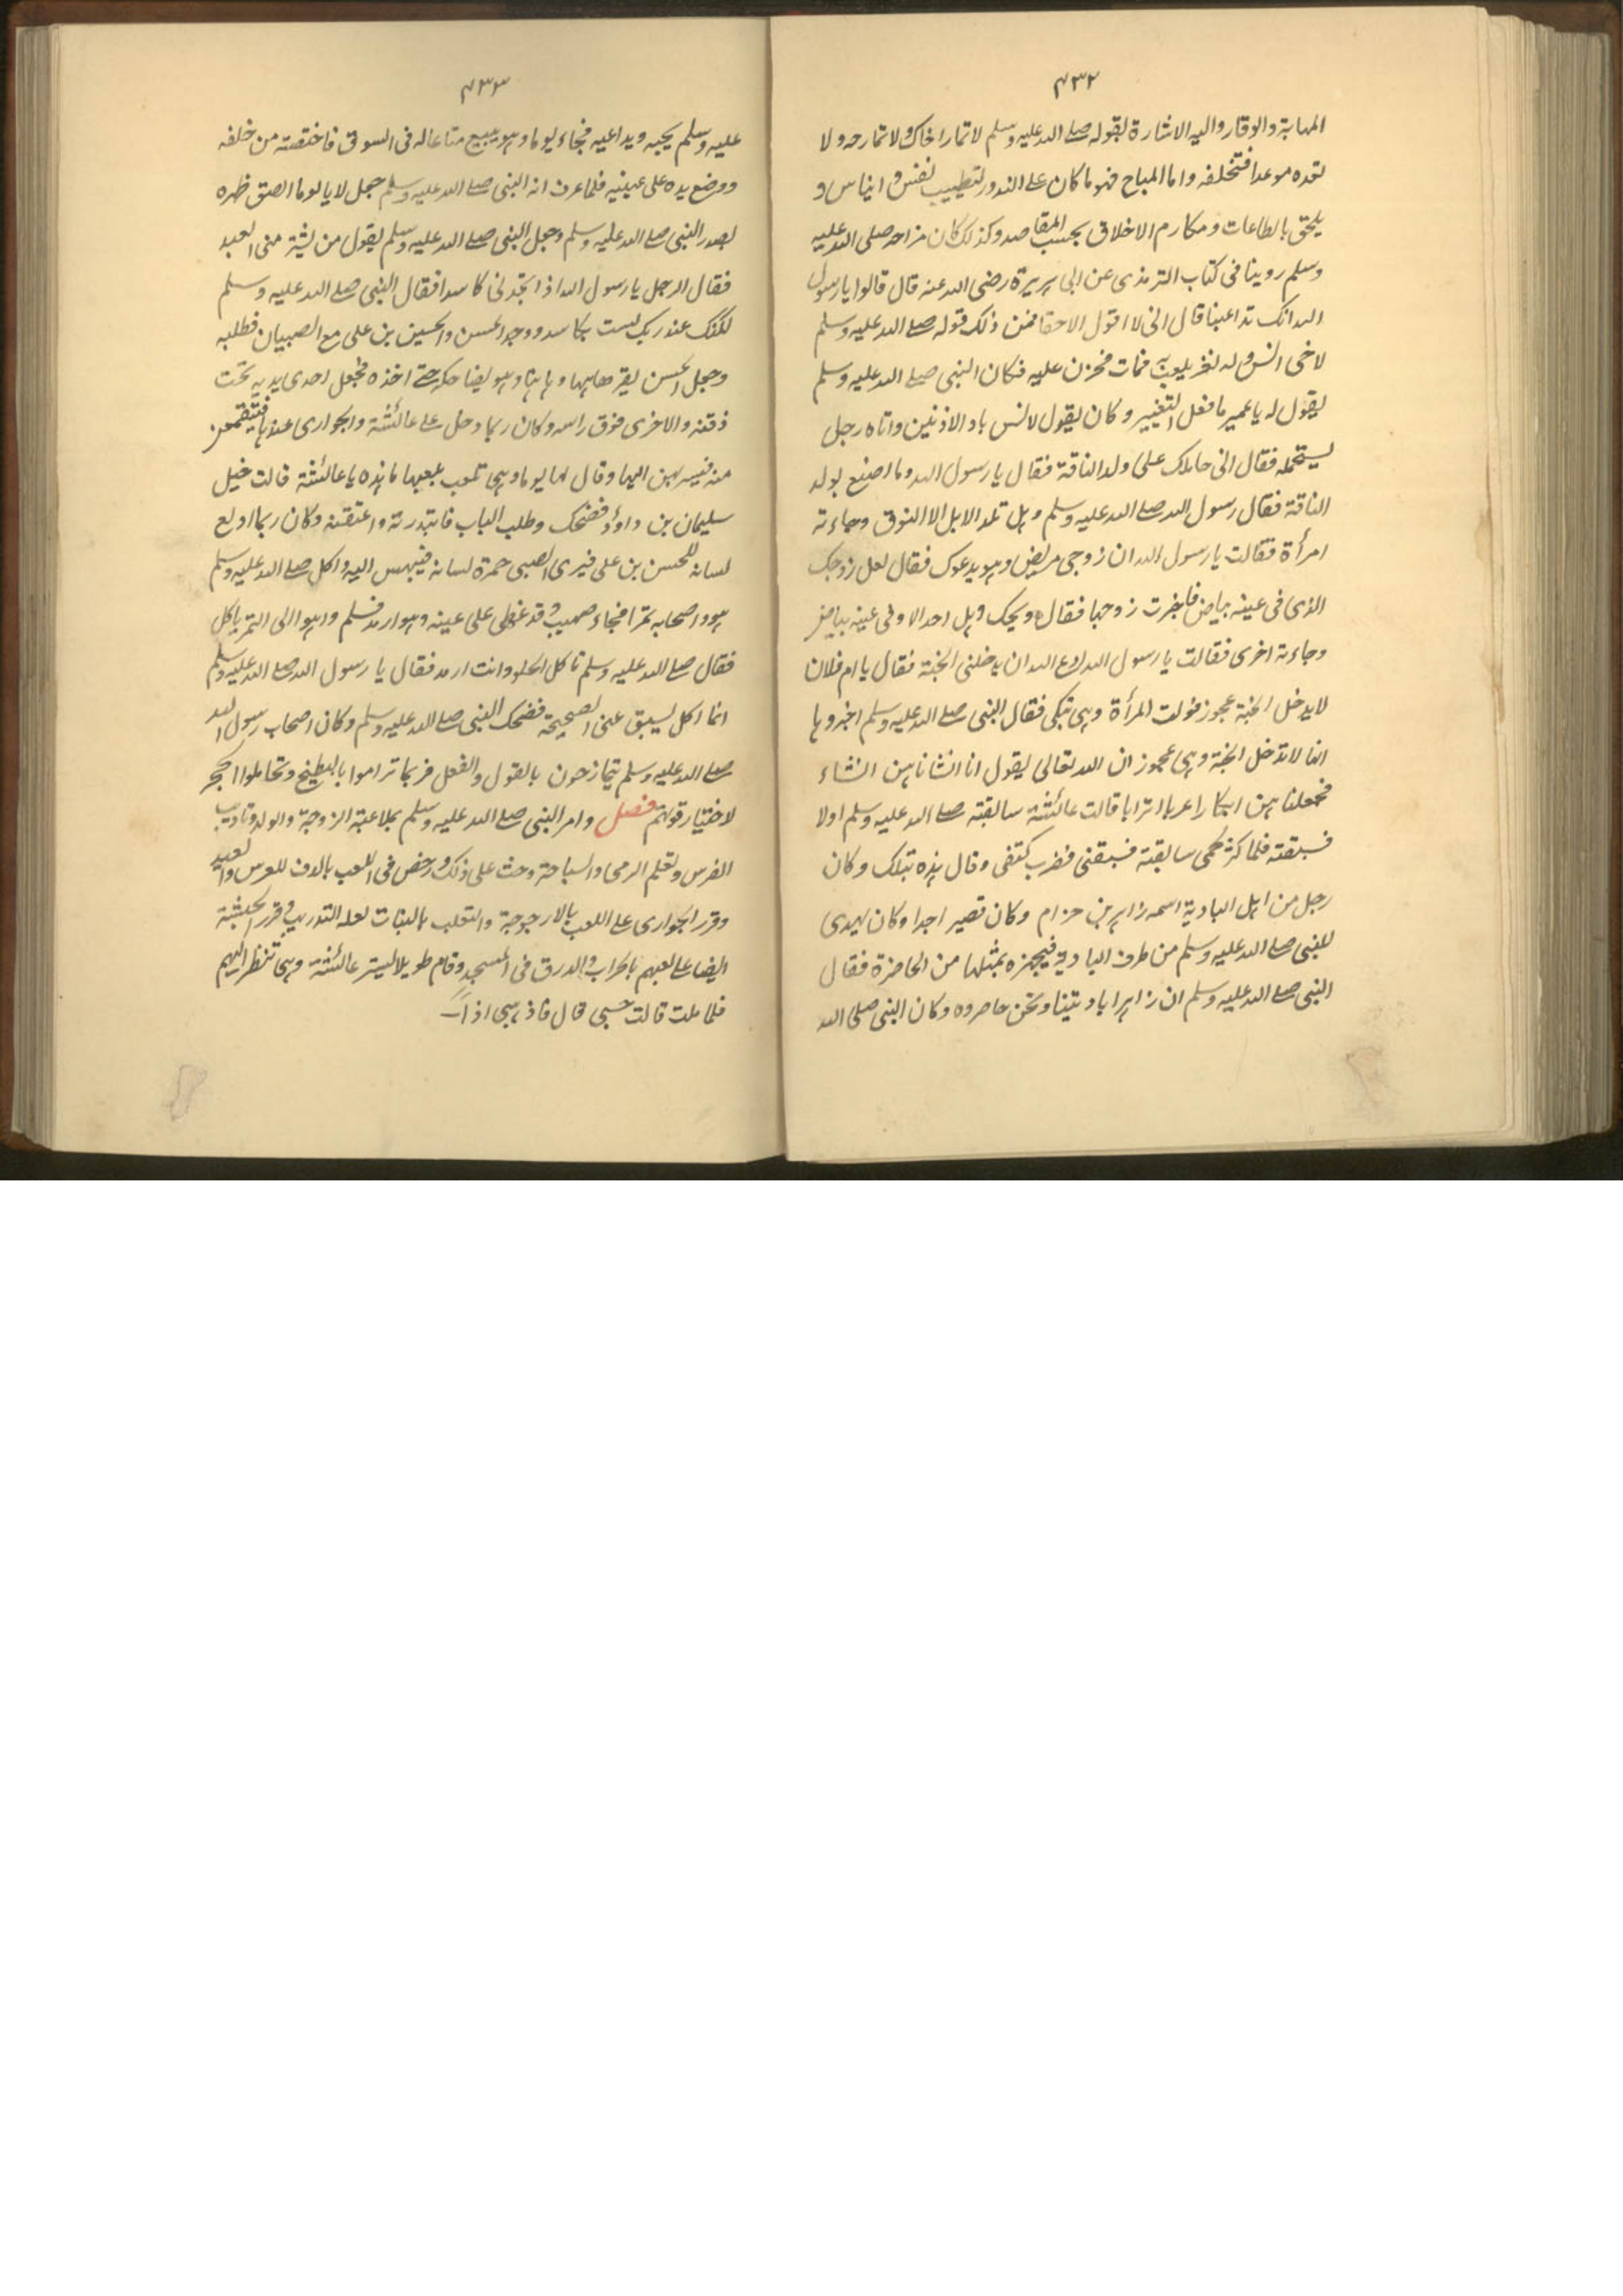 ٤٣٢
المهابة والوقار واليه الاشارة لقوله صلے الله عليه وسلم لا تمار اخاك ولا تمازحه ولا
تعده موعدا فتخلفه واما المباح فهو ما كان علے الندور لتطييب نفس و ايناس و
يلحق بالطاعات ومكارم الاخلاق بحسب المقاصد وكذلك كان مزاحه صلى الله عليه
وسلم روينا فى كتاب الترمذى عن ابى هريرة رضى الله عنه قال قالوا يا رسول
الله انك تداعبنا قال انى لا اقول الا حقا فمن ذلك قوله صلے الله عليه وسلم
لاخى انس و له نغر يلعب به فمات فحزن عليه فكان النبى صلے الله عليه وسلم
يقول له يا عمير ما فعل النغير وكان يقول لانس ياذ الاذنين واتاه رجل
يستحمله فقال انى حاملك على ولد الناقة فقال يا رسول الله وما اصنع بولد
الناقة فقال رسول الله صلے الله عليه وسلم وهل تلد الابل الا النوق وجاءته
امرأة فقالت يا رسول الله ان زوجى مريض وهو يدعوك فقال لعل زوجك
الذى فى عينه بياض فاخبرت زوجها فقال ويحك وهل احد الا وفى عينه بياض
وجاءته اخرى فقالت يا رسول الله ادع الله ان يدخلنى الجنة فقال يا ام فلان
لا يدخل الجنة عجوز فولت المرأة وهى تبكى فقال النبى صلے الله عليه وسلم اخبروها
انها لا تدخل الجنة وهى عجوز ان الله تعالى يقول انا انشاناهن انشاء
فجعلناهن ابكارا عربا اترابا قالت عائشة سابقته صلے الله عليه وسلم اولا
فسبقته فلما كثر لحمى سابقته فسبقنى فضرب كتفى وقال هذه بتلك وكان
رجل من اهل البادية اسمه زاهر بن حزام وكان قصير اجدا وكان يهدى
للنبى صلے الله عليه وسلم من طرف البادية فيجهزه بمثلها من الحاضرة فقال
النبى صلے الله عليه وسلم ان زاهرا باديتنا ونحن حاضروه وكان النبى صلى الله
٤٣٣
عليه وسلم يحبه ويداعبه فجاء يوما وهو يبيع متاعا له فى السوق فاحتضنه من خلفه
ووضع يده على عينيه فلما عرف انه النبى صلے الله عليه وسلم جعل لا يالوما الصق ظهره
بصدر النبى صلے الله عليه وسلم وجعل النبى صلے الله عليه وسلم يقول من يشتر منى العبد
فقال الرجل يا رسول الله اذا تجدنى كاسدا فقال النبى صلے الله عليه وسلم
لكنك عند ربك لست بكاسد ووجد الحسن والحسين بن على مع الصبيان فطلبه
وجعل الحسن يفر هاهنا وهاهنا وهو يضاحكه حتے اخذه فجعل احدى يديه تحت
ذقنه والاخرى فوق راسه وكان ربما دخل علے عائشة والجوارى عندها فيتقمعن
منه فيسربهن اليها وقال لها يوما وهى تلعب بلعبها ما هذه يا عائشة قالت خيل
سليمان بن داؤد فضحك وطلب الباب فابتدرته واعتقنه وكان ربما ادلع
لسانه للحسن بن على فيرى الصبى حمرة لسانه فيبهش اليه واكل صلے الله عليه وسلم
هو واصحابه تمرا فجاء صهيب وقد غطى على عينه وهو ارمد فسلم واهوا الى التمر ياكل
فقال صلے الله عليه وسلم تاكل الحلو وانت ارمد فقال يا رسول الله صلے الله عليه وسلم
انما اكل بشق عينى الصحيحة فضحك النبى صلے الله عليه وسلم وكان اصحاب رسول الله
صلے الله عليه وسلم يتمازحون بالقول والفعل فربما تراموا بالبطيخ وتحاملوا الحجر
لاختبار قوتهم فصل وامر النبى صلے الله عليه وسلم بملاعبة الزوجة والولد وتاديب
الفرس وتعلم الرمى والسباحة وحث على ذلك ورخص فى اللعب بالدف للعرس والعيد
وقرر الجوارى علے اللعب بالارجوحة والتلعب بالبنات لعلة التدريب وقرر الحبشة
ايضا على لعبهم بالحراب والدرق فى المسجد وقام طويلا ليستر عائشة وهى تنظر اليهم
فلما ملت قالت حسبى قال فاذهبى اذاً